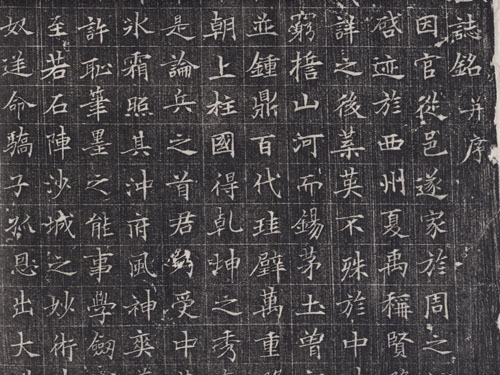 誌銘并序
因官從邑遂家於周之
啓迹於西州夏禹稱賢
詳之後葉英不殊於中
窮山河而錫茅土曽
並鍾鼎百代珪璧萬重
朝上柱國得乹坤之秀
是論兵之首君躬受中
氷霜照其沖府風神奕
許恥筆墨之能事學劔
至若石陣沙城之妙術
奴逆命驕子孤恩出大